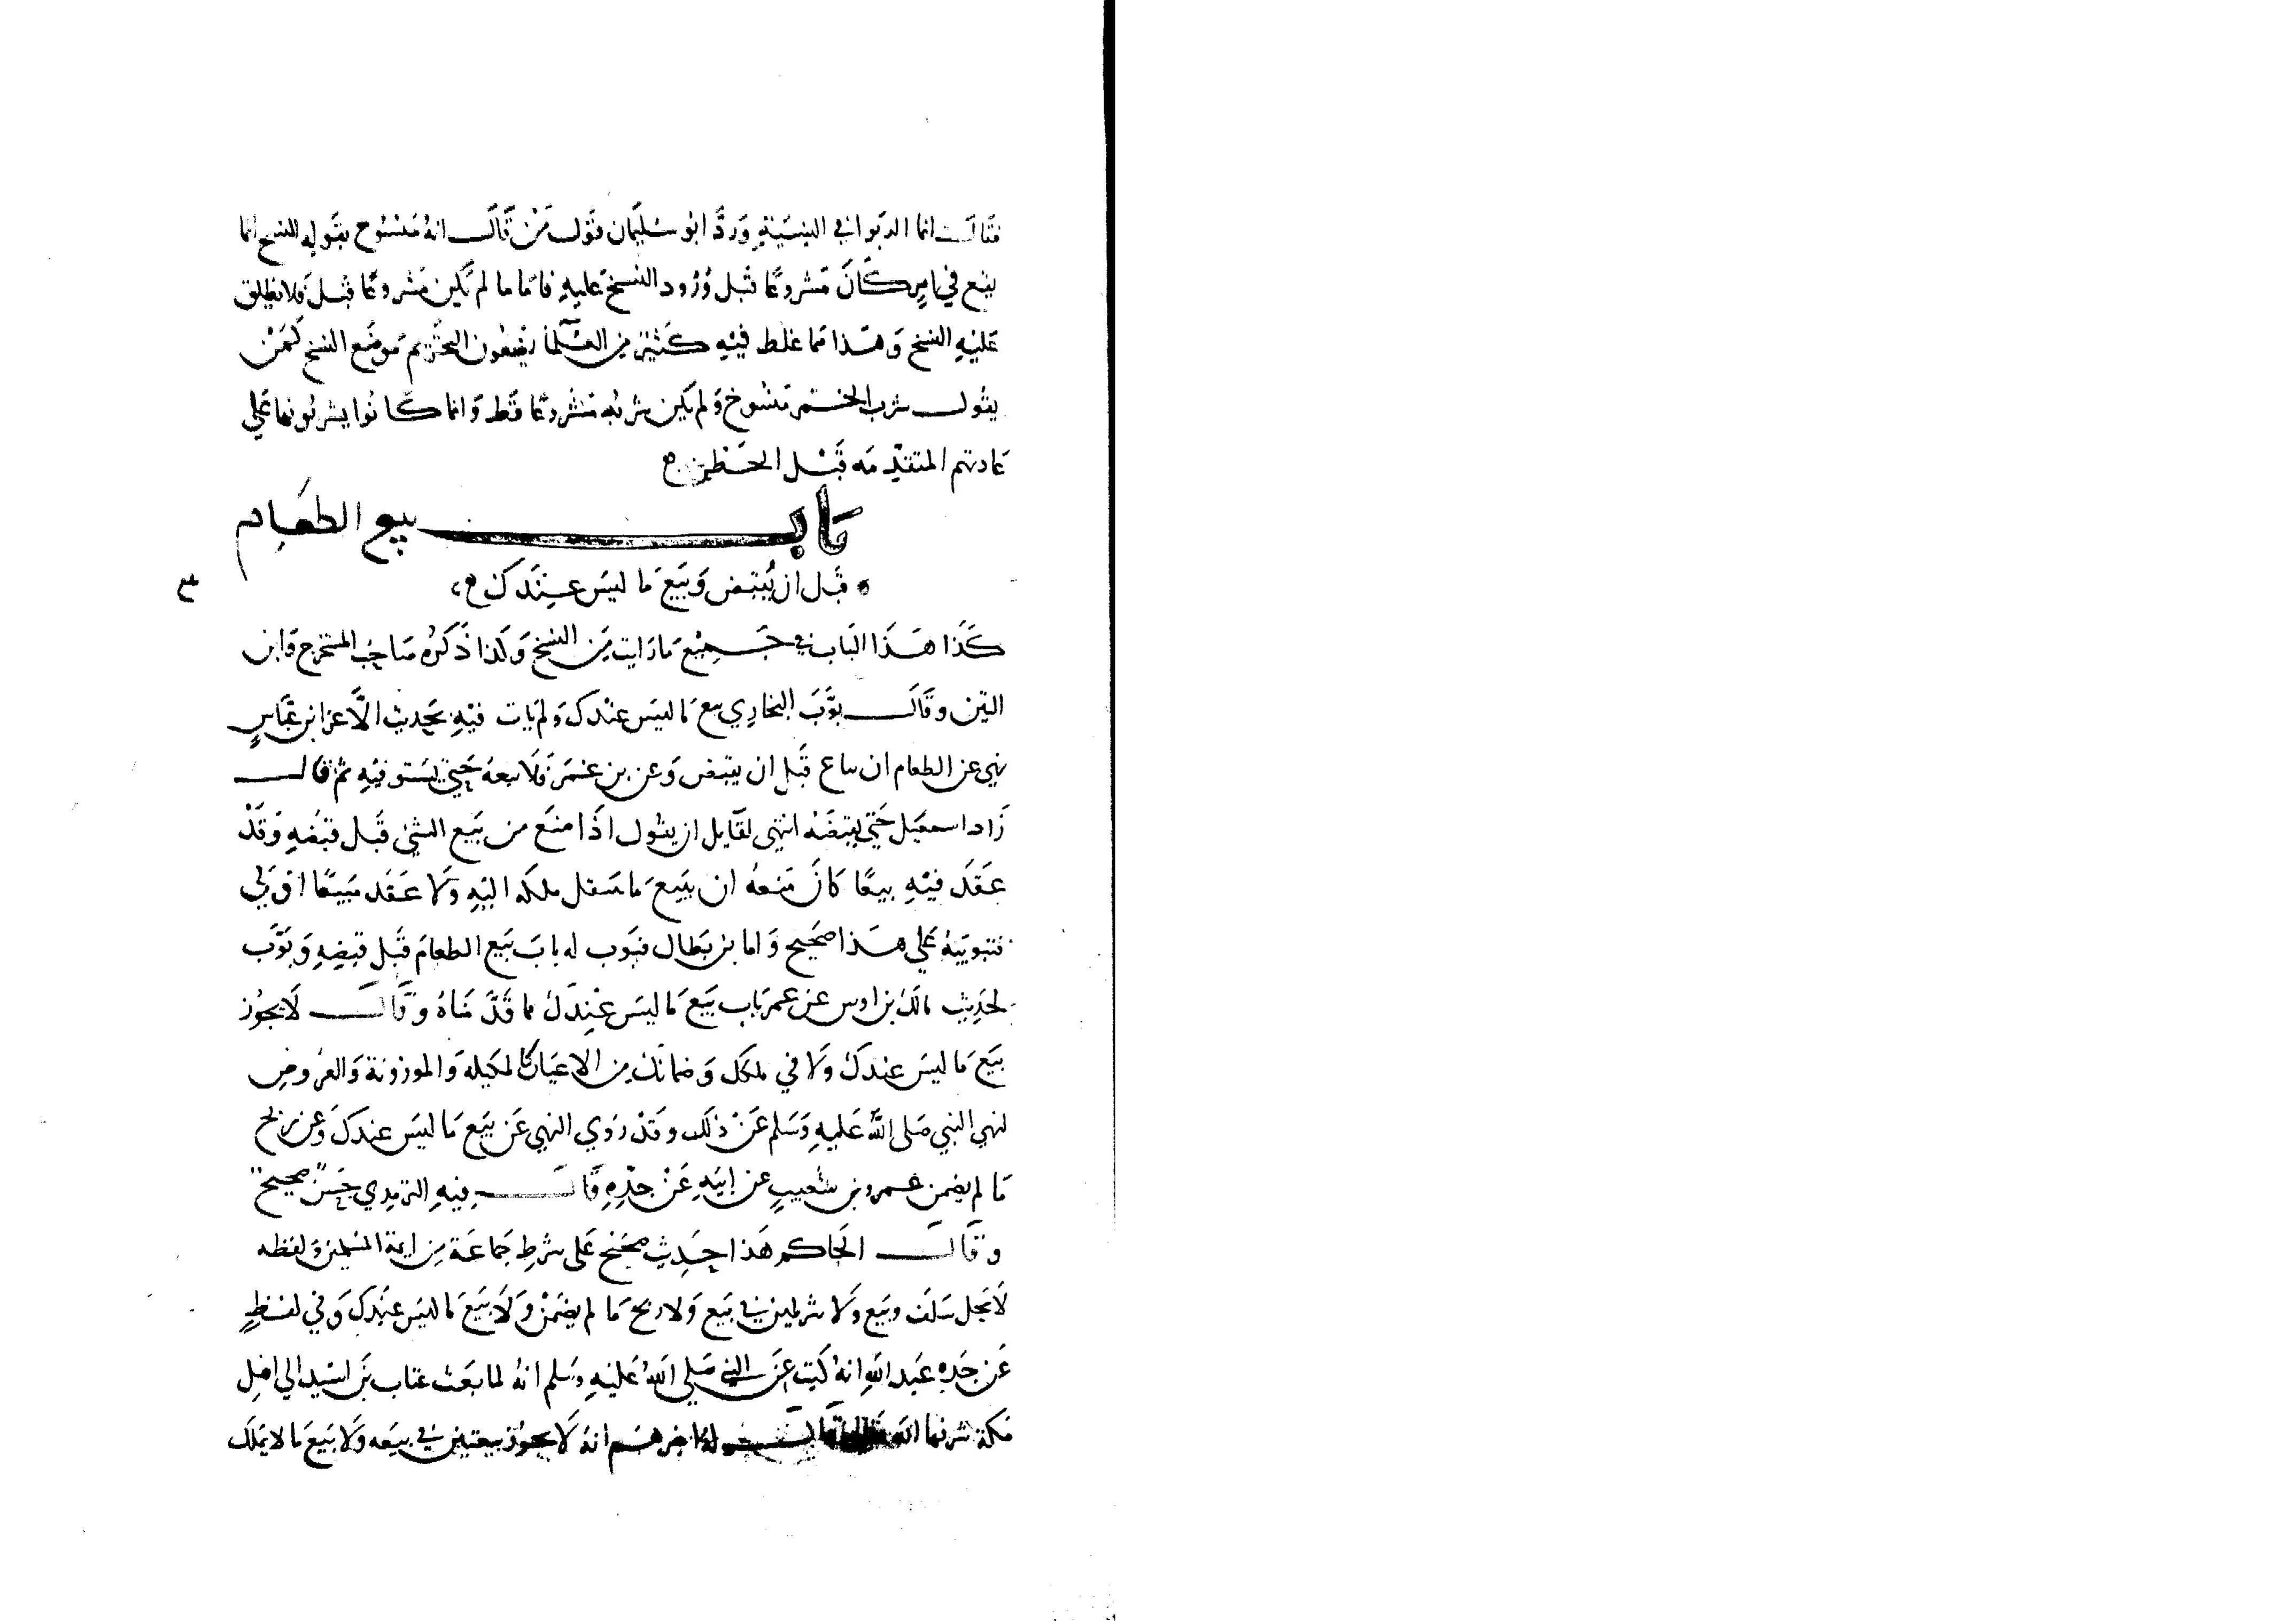 فقالت انما الربوا في النسيئة ورد ابو سليمان قول من قال انه منسوخ بقوله النسخ انما
يقع في امر كان مشروعا قبل ورود النسخ عليه فاما ما لم يكن مشروعا قبل فلا يطلق
عليه النسخ وهذا مما غلط فيه كثير من العلما يضعون التحريم موضع النسخ كمن
يقول شرب الخمر منسوخ ولم يكن شربه مشروعا قط وانما كانوا يشربونها على
عادتهم المتقدمه قبل الحظر ه
باب بيع الطعام
قبل ان يقبض وبيع ما ليس عندك ه
كذا هذا الباب في جميع ما رايت من النسخ وكذا ذكره صاحب المستخرج وابن
التين وقال بوب البخاري بيع ما ليس عندك ولم يات فيه بحديث الا عن ابن عباس
نهي عن الطعام ان يباع قبل ان يقبض وعن بن عمر فلا يبعه حتى يستوفيه ثم قال
زاد اسمعيل حتى يقبضه انتهى لقايل ان يقول اذا منع من بيع الشي قبل قبضه وقد
عقد فيه بيعا كان منعه ان يبيع ما ينتقل ملكه اليه ولا عقد مبيعا اولى
فتبويبه على هذا صحيح واما بن بطال فبوب له باب بيع الطعام قبل قبضه وبوب
لحديث مالك بن اوس عن عمر باب بيع ما ليس عندك مما قدمناه وقال لا يجوز
بيع ما ليس عندك ولا في ملكك وضمانك من الاعيان كالمكيله والموزونة والعروض
لنهي النبي صلى الله عليه وسلم عن ذلك وقد روي النهي عن بيع ما ليس عندك وعن ربح
ما لم يضمن عمرو بن شعيب عن ابيه عن جده قال فيه الترمدي حسن صحيح
وقال الحاكم هذا حديث صحيح على شرط جماعة من ايمة المسلمين ولفظه
لا يحل سلف وبيع ولا شرطين في بيع ولا ربح ما لم يضمن ولا بيع ما ليس عندك وفي لفظ
عن جده عبد الله انه كتب عن النبي صلى الله عليه وسلم انه لما بعث عتاب بن اسيد الي اهل
مكة شرفها الله اخبرهم انه لا يجوز بيعتين في بيعه ولا بيع ما لا يملك